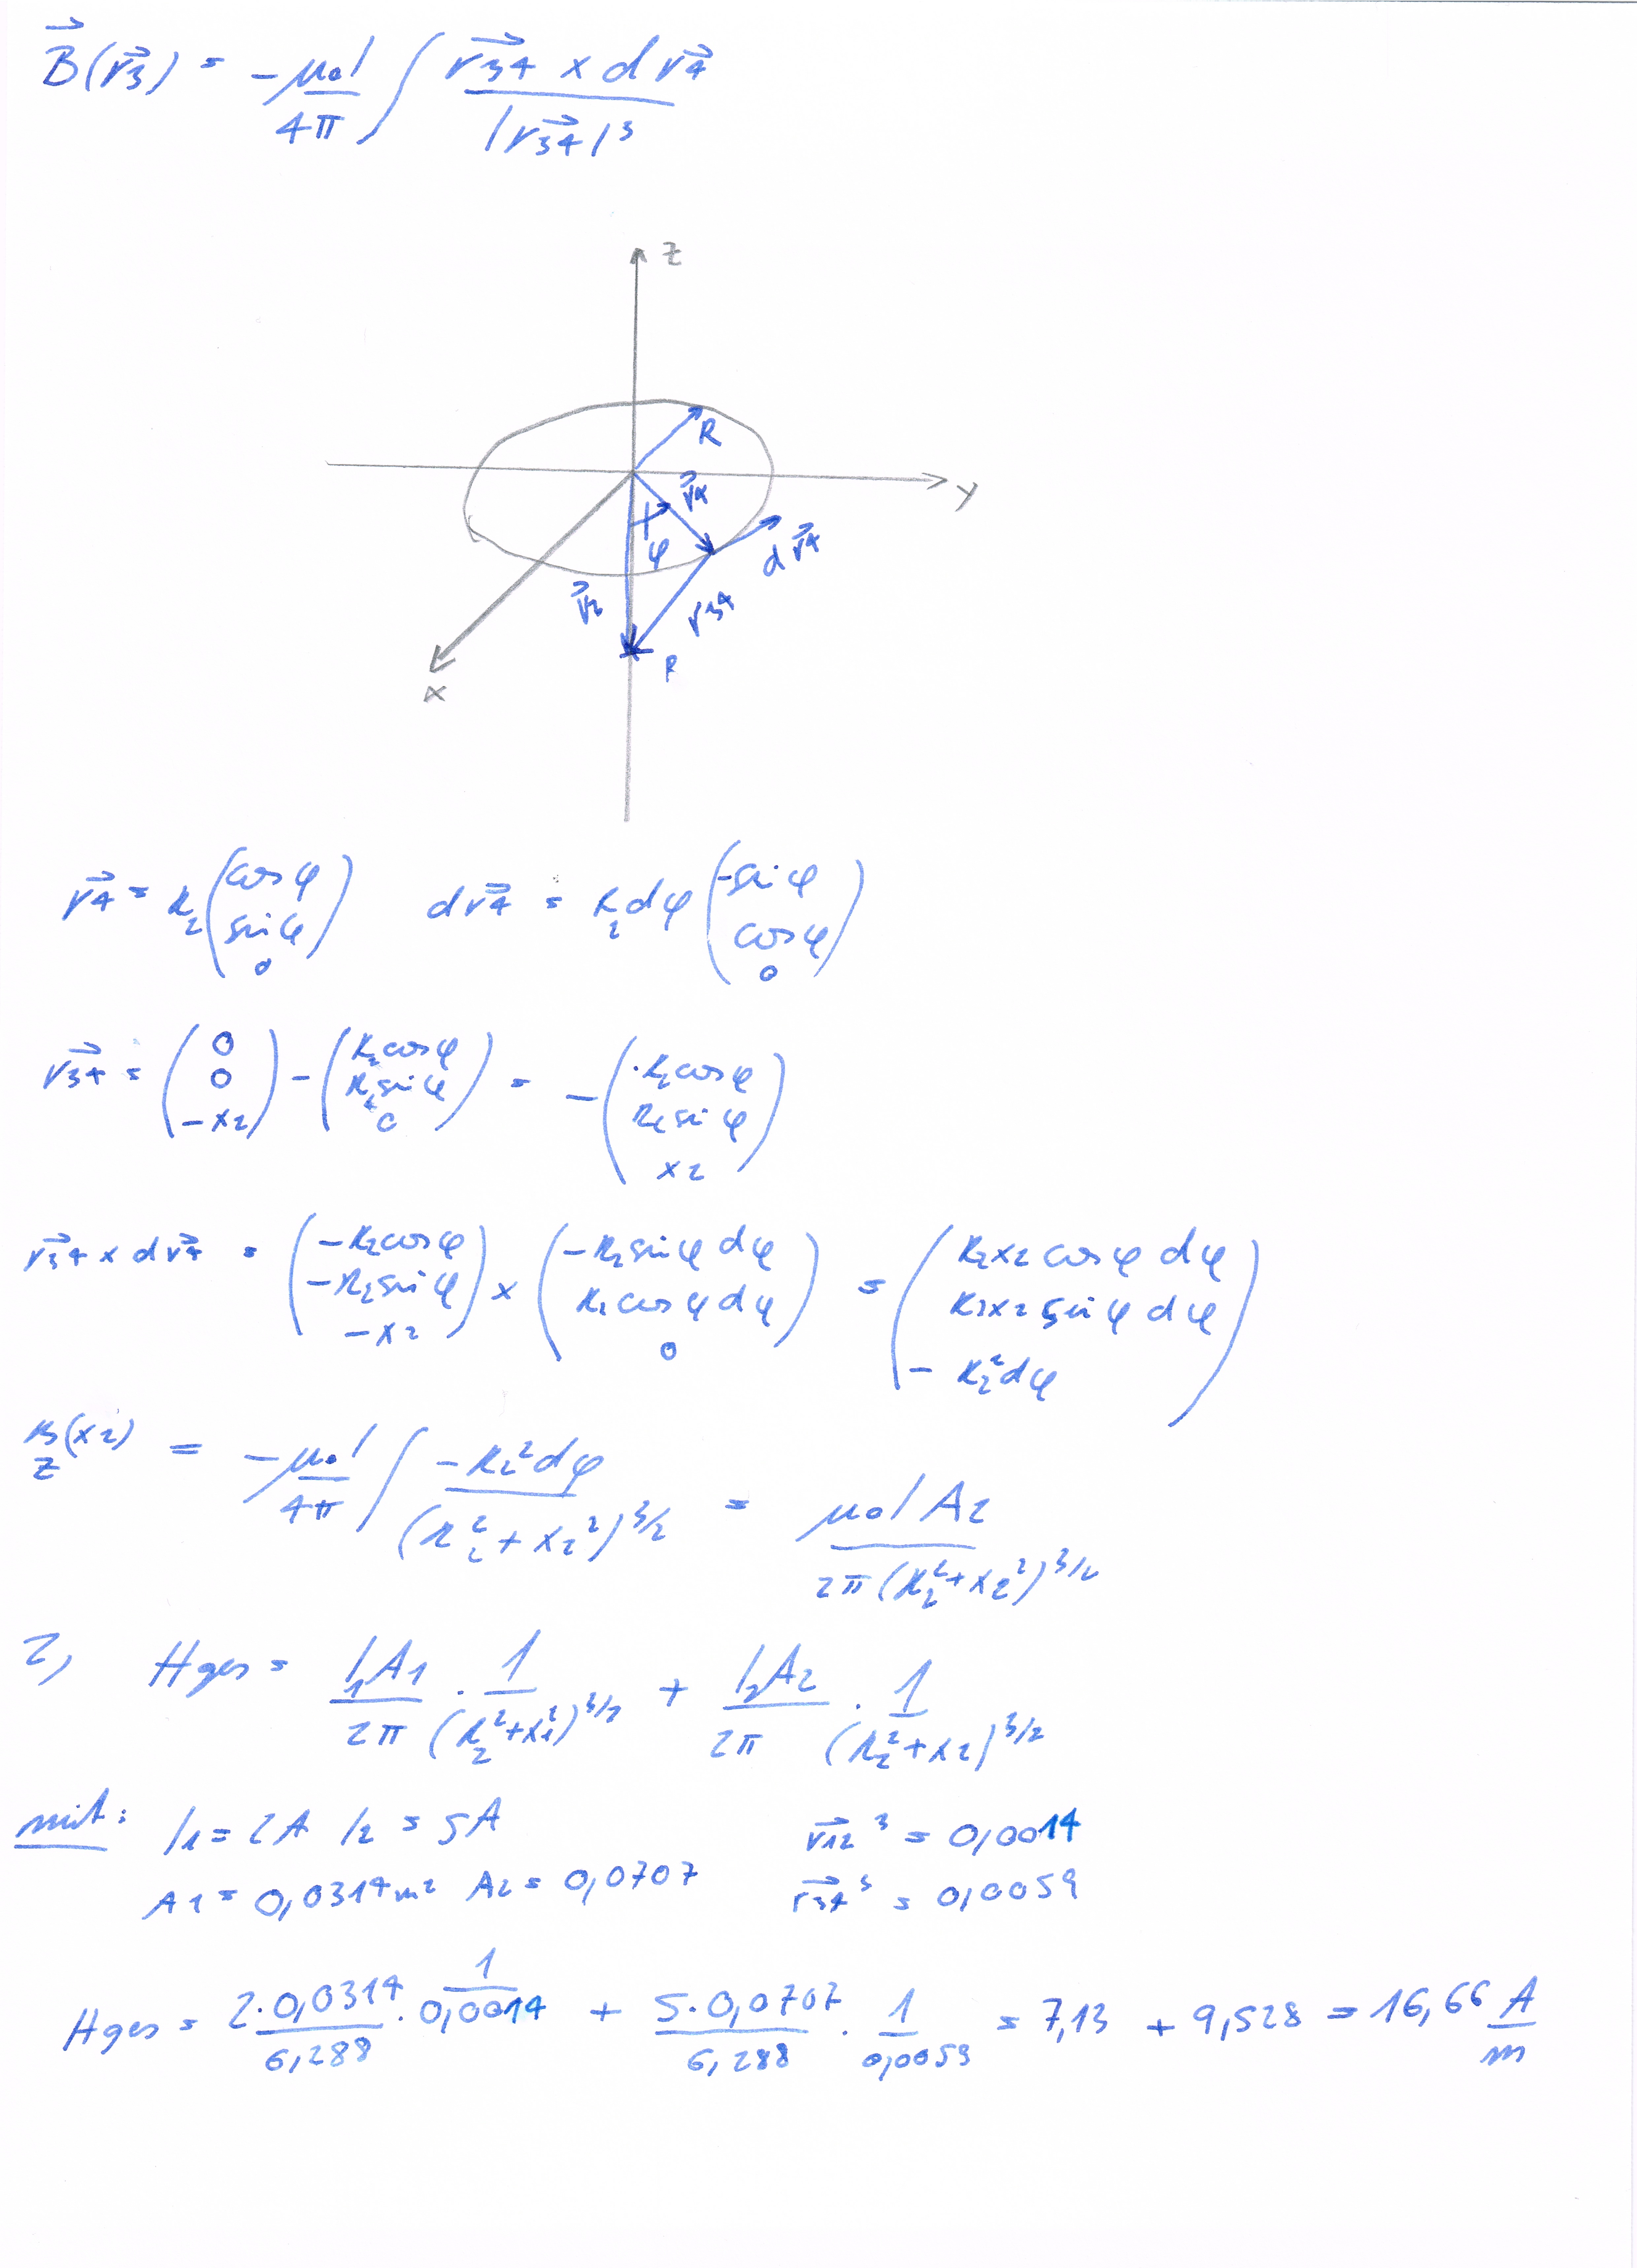 B⃗(r⃗3) = -μ0 I / 4π ∫ r⃗34 x d r⃗4 / |r⃗34|³
z
R
y
r⃗4
φ
d r⃗4
r⃗3
r34
P
x
r⃗4 = R2 (cosφ sinφ 0) dr⃗4 = R2 dφ (-sinφ cosφ 0)
r⃗34 = (0 0 -x2) - (R2cosφ R2sinφ 0) = -(R2cosφ R2sinφ x2)
r⃗34 x dr⃗4 = (-R2cosφ -R2sinφ -x2) x (-R2sinφ dφ R2cosφ dφ 0) = (R2x2 cosφ dφ R2x2 sinφ dφ - R2² dφ)
Bz(x2) = -μ0 I / 4π ∫ -R2² dφ / (R2² + x2²)^3/2 = μ0 I A2 / 2π (R2² + x2²)^3/2
2, Hges = I1A1 / 2π · 1 / (R2² + x1²)^3/2 + I2A2 / 2π · 1 / (R2² + x2)^3/2
mit: I1 = 2A I2 = 5A r⃗12³ = 0,0014
A1 = 0,0314m² A2 = 0,0707 r⃗34³ = 0,0059
Hges = 2·0,0314 / 6,288 · 1 / 0,0014 + 5·0,0707 / 6,288 · 1 / 0,0059 = 7,13 + 9,528 = 16,66 A/m